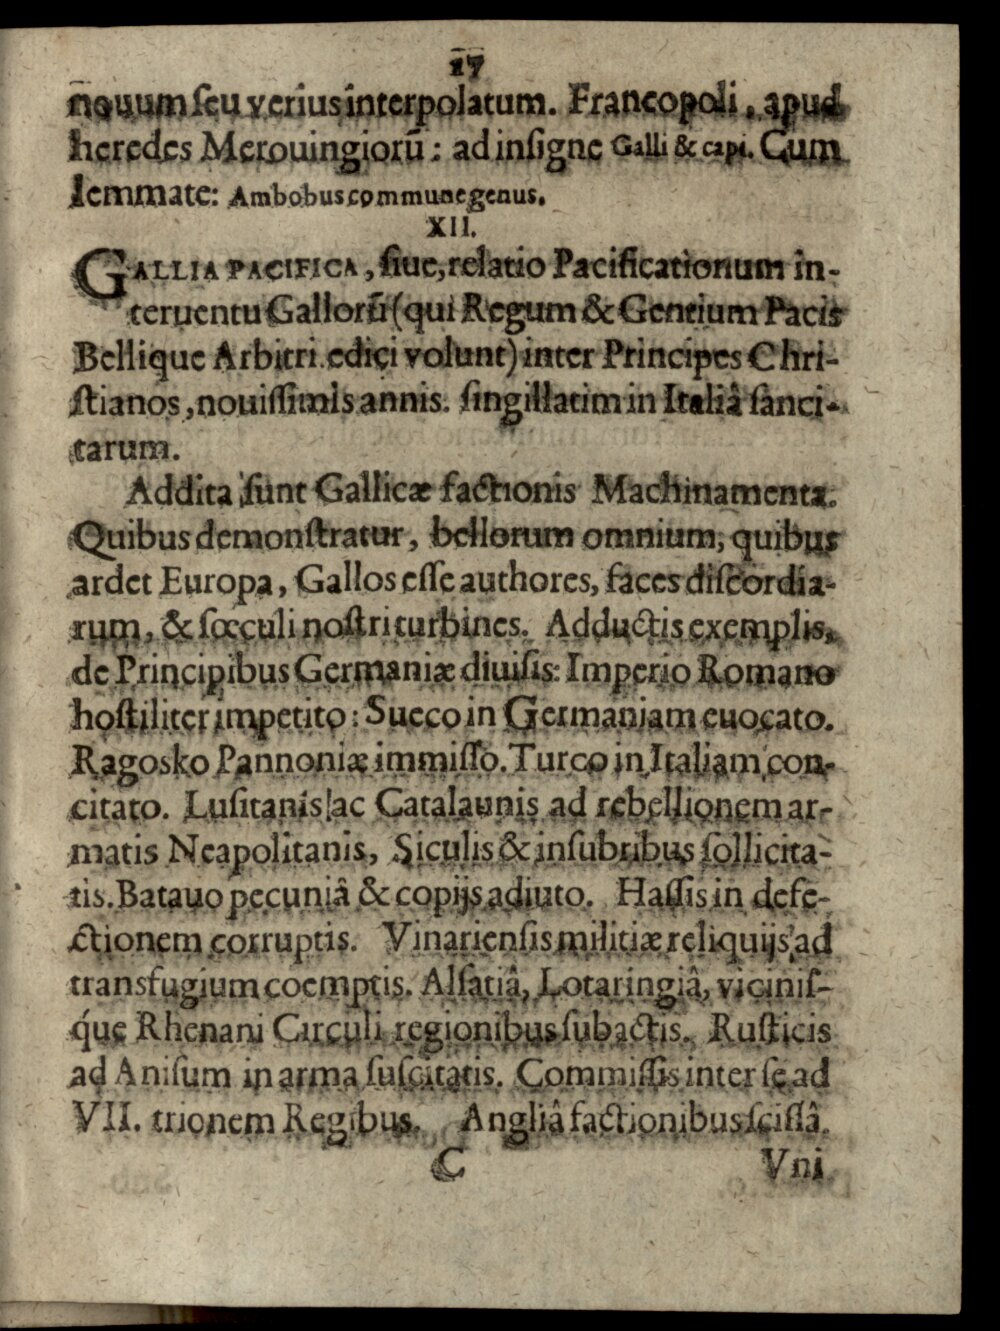 17
nouum ſeu verius interpolatum. Francopoli, apud
heredes Merouingiorũ: ad inſigne Galli & capi. Cum
lemmate: Ambobus commune genus.
XII.
GALLIA PACIFICA, ſiue, relatio Pacificationum in-
teruentu Gallorũ (qui Regum & Gentium Pacis
Bellique Arbitri. edici volunt) inter Principes Chri-
ſtianos, nouiſſimis annis. ſingillatim in Italiâ ſanci-
tarum.
Addita ſunt Gallicæ factionis Machinamenta.
Quibus demonſtratur, bellorum omnium, quibus
ardet Europa, Gallos eſſe authores, faces diſcordia-
rum, & ſœculi noſtri turbines. Adductis exemplis,
de Principibus Germaniæ diuiſis: Imperio Romano
hoſtiliter impetito: Sueco in Germaniam euocato.
Ragosko Pannoniæ immiſſo. Turco in Italiam con-
citato. Luſitanis ac Catalaunis ad rebellionem ar-
matis Neapolitanis, Siculis & inſubribus ſollicita-
tis. Batauo pecuniâ & copijs adiuto. Haſſis in defe-
ctionem corruptis. Vinarienſis militiæ reliquijs ad
transfugium coemptis. Alſatiâ, Lotaringiâ, viciniſ-
q́ue Rhenani Circuli regionibus ſubactis. Ruſticis
ad Aniſum in arma ſuſcitatis. Commiſſis inter ſe ad
VII. trionem Regibus. Angliâ factionibus ſciſſâ.
C Vni